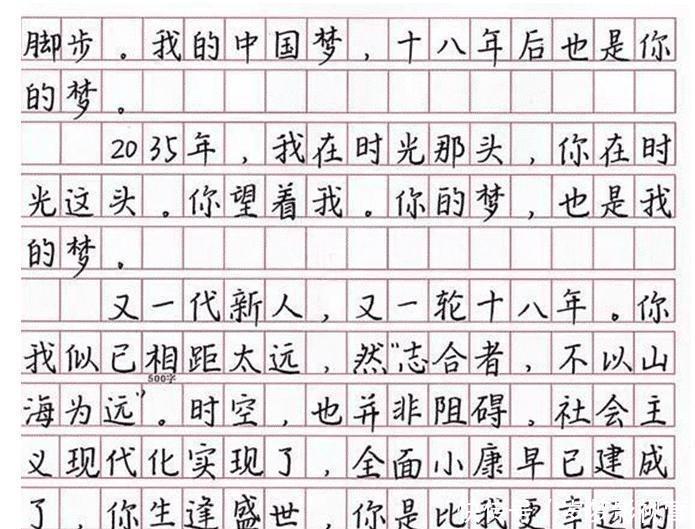 脚步。我的中国梦，十八年后也是你
的梦。
2035年，我在时光那头，你在时
光这头。你望着我。你的梦，也是我
的梦。
又一代新人，又一轮十八年。你
我似已相距太远，然“志合者，不以山
500字
海为远”。时空，也并非阻碍，社会主
义现代化实现了，全面小康早已建成
了，你生逢盛世，你是比我更